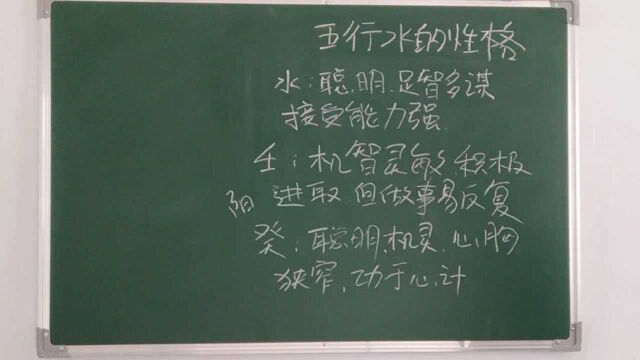 五行水的性格
水:聪明.足智多谋
接受能力强.
壬:机智灵敏.积极
阳 进取.但做事易反复
癸:聪明.机灵.心胸
狭窄.功于心计